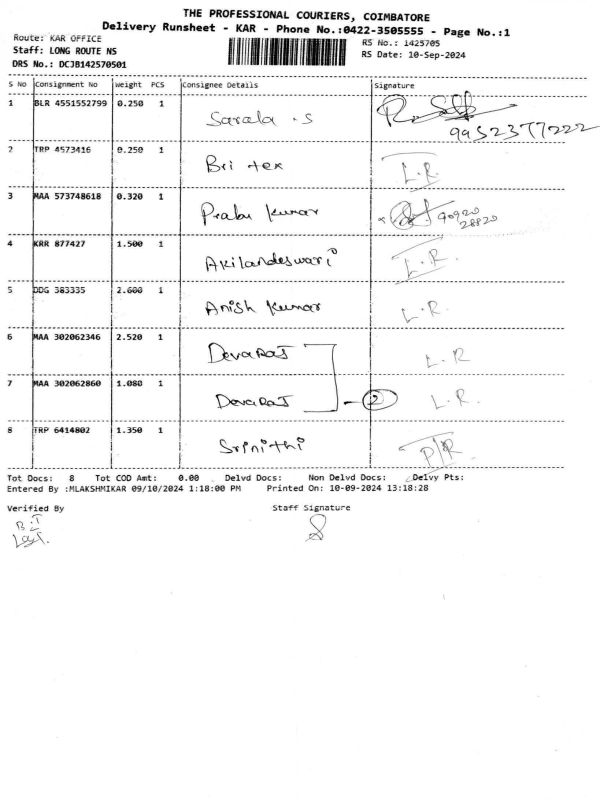 THE PROFESSIONAL COURIERS, COIMBATORE
Delivery Runsheet - KAR - Phone No.:0422-3505555 - Page No.:1
Route: KAR OFFICE RS No.: 1425705
Staff: LONG ROUTE NS RS Date: 10-Sep-2024
DRS No.: DCJB142570501
S No Consignment No Weight PCS Consignee Details Signature
1 BLR 4551552799 0.250 1 Sarala .S 9952377222
2 TRP 4573416 0.250 1 Bri tex L.R.
3 MAA 573748618 0.320 1 Prabu Kumar 90920
28820
4 KRR 877427 1.500 1 Akilandeswari L.R.
5 DDG 383335 2.600 1 Anish Kumar L.R.
6 MAA 302062346 2.520 1 Devaraj L.R
7 MAA 302062860 1.080 1 Devaraj - 2 L.R.
8 TRP 6414802 1.350 1 Srinithi P/R
Tot Docs: 8 Tot COD Amt: 0.00 Delvd Docs: Non Delvd Docs: Delvy Pts:
Entered By :MLAKSHMIKAR 09/10/2024 1:18:00 PM Printed On: 10-09-2024 13:18:28
Verified By Staff Signature